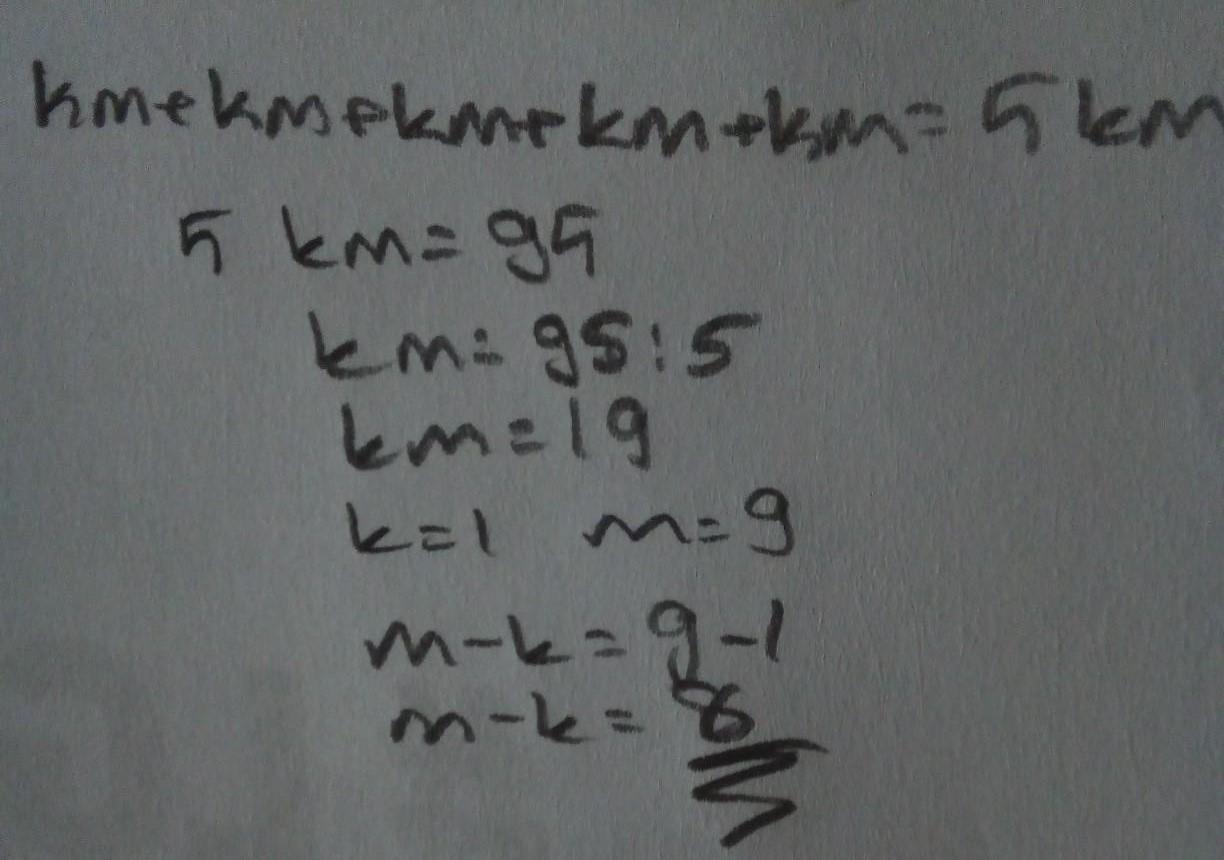 km+km+km+km+km=5km
5 km=95
km=95:5
km=19
k=1 m=9
m-k=9-1
m-k=8